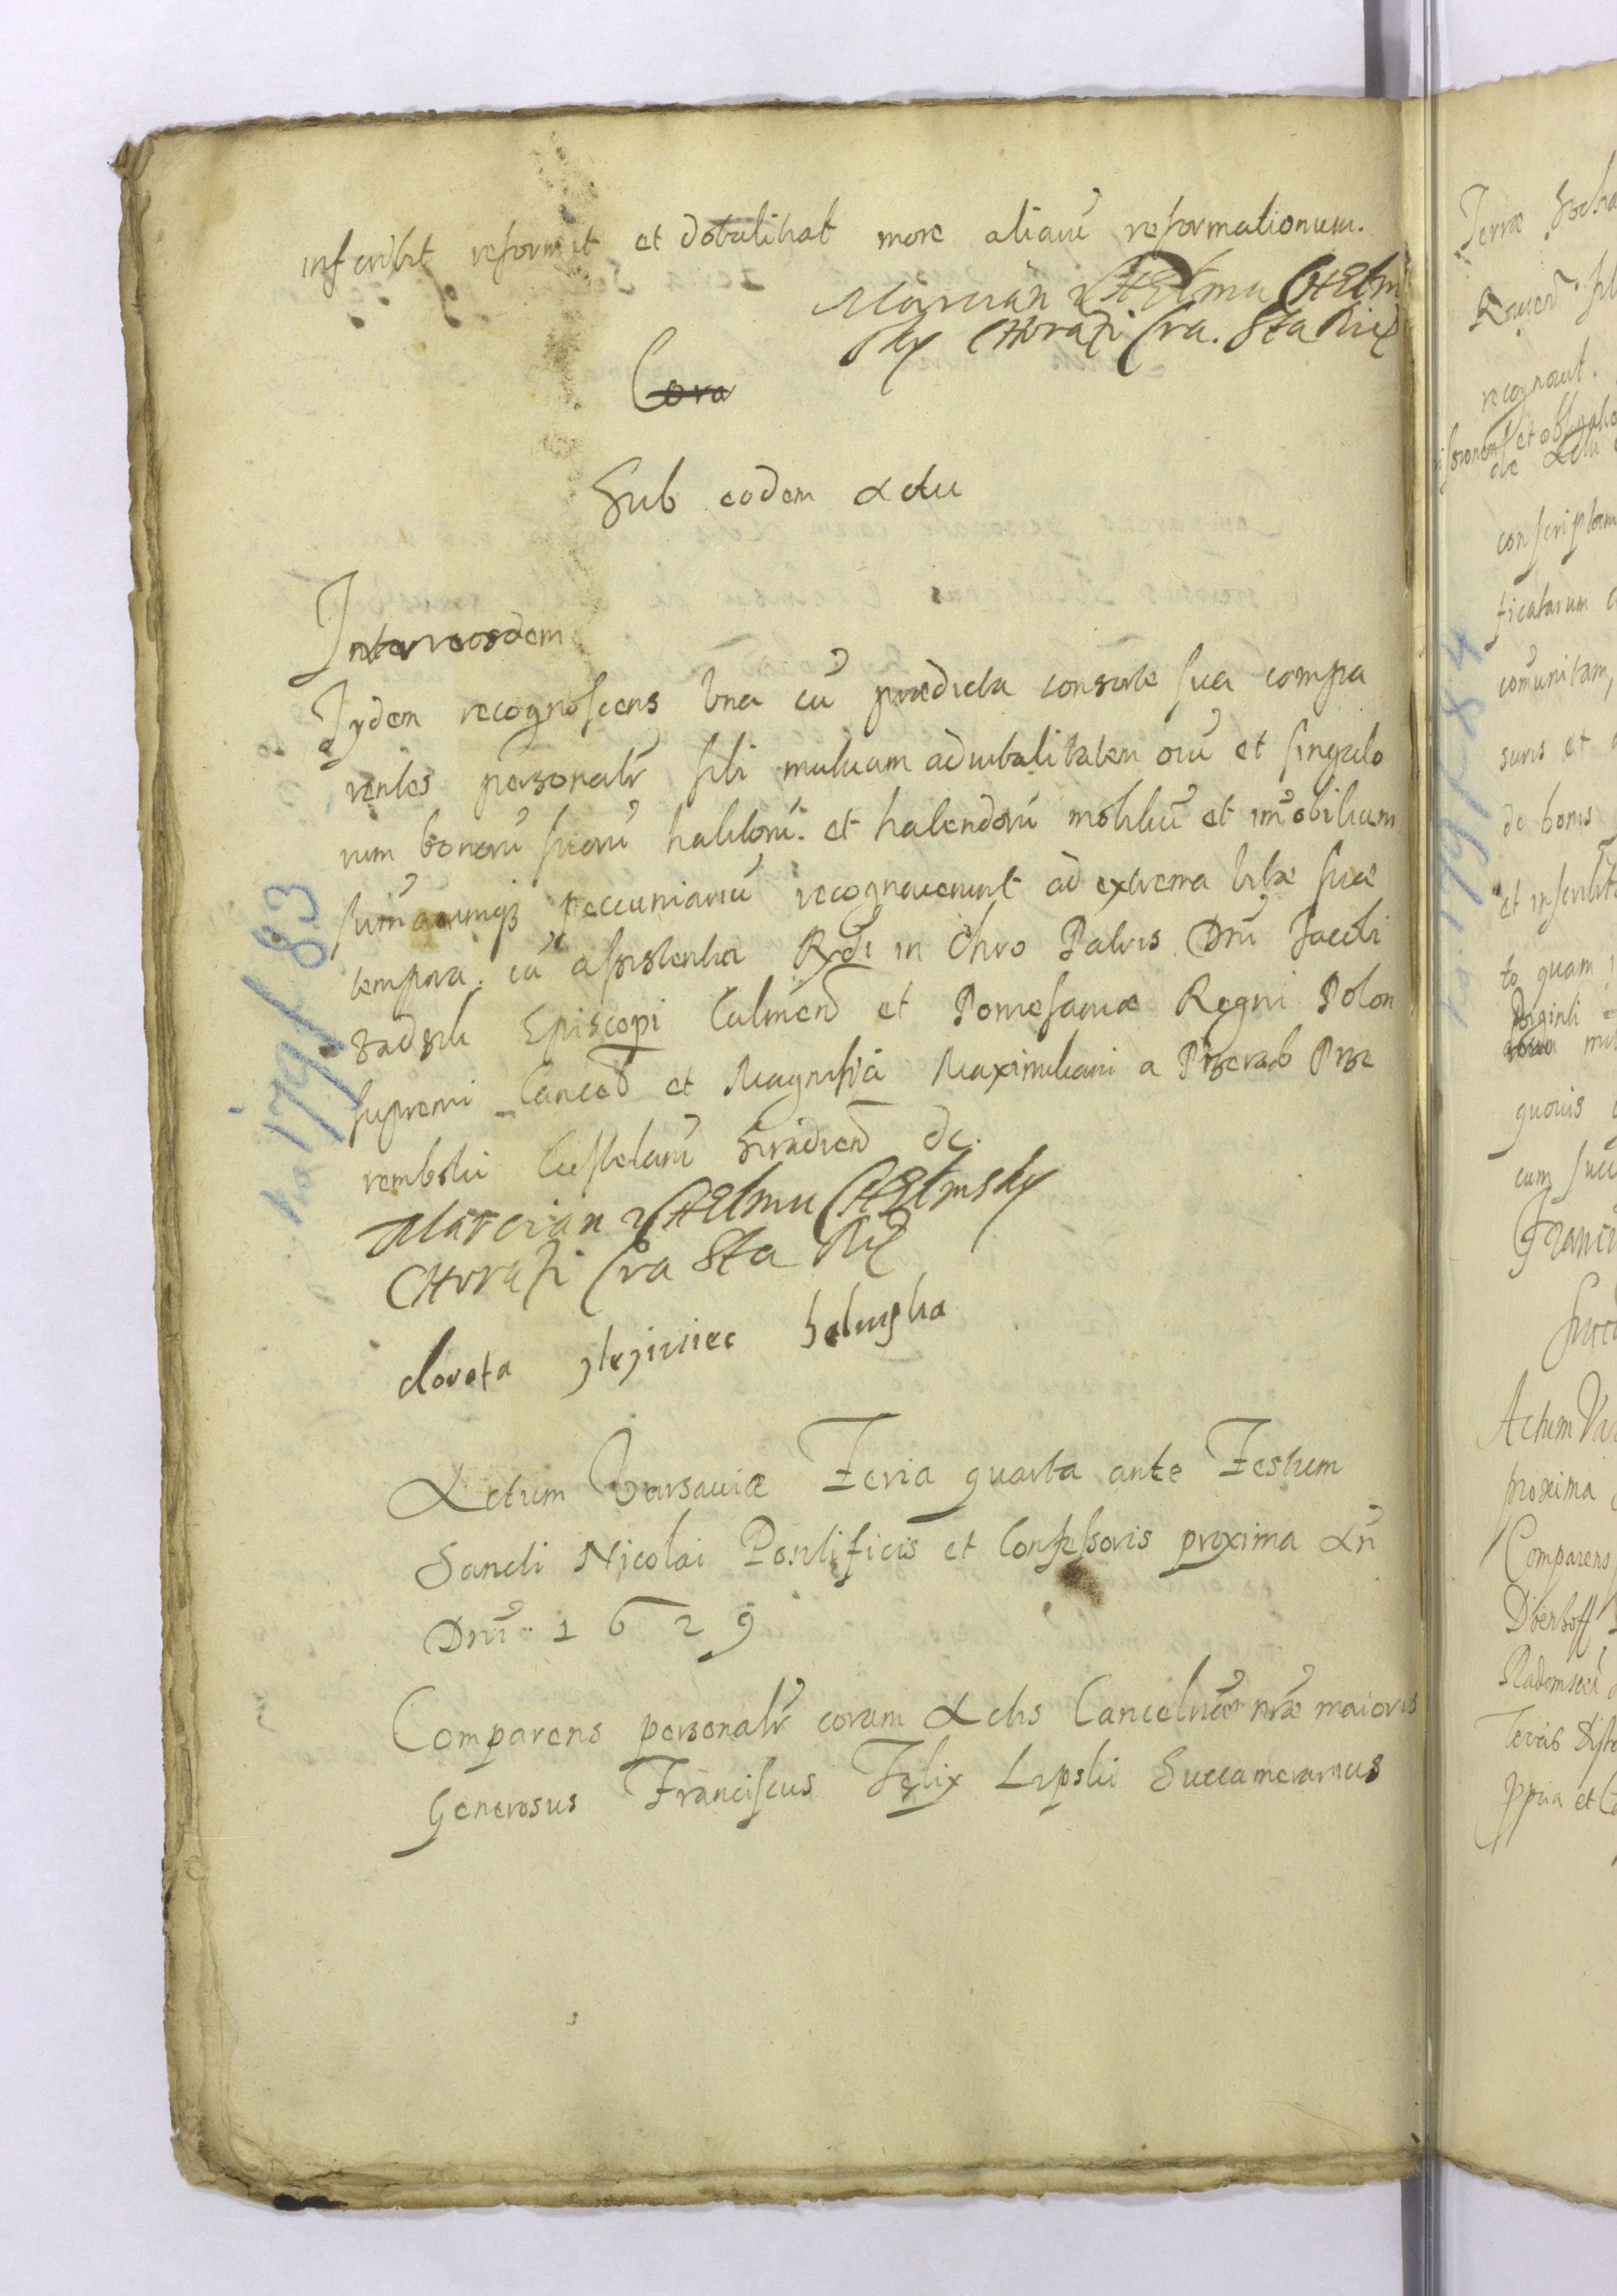 inscribit reformat et dotalitiat more aliarũ reformationum.
Marcian z CHElma CHElm
sky CHorązi Cra. Sta Ric
Cora
Sub eodem Actu
Inter eosdem
Iydem recognoscens Vna cũ prædicta consorte sua compa
rentes personalr̃ sibi mutuam aduitalitatem oiũ et singulo
rum bonorũ suorũ habitorũ et habendorũ mobiliũ et im̃obilium
sum̃arumqꝫ peccuniariũ recognouerunt ad extrema vitæ suæ
tempora. cũ assistentia Rṽdi in Chro Patris Dñi Jacobi
Zadzik Episcopi Culmeñ et Pomesaniæ Regni Polon
supremi Cancell et Magnifici Maximiliani a Przeramb Prze
rembski Castelani Siradien̄ etc.
Marcian z CHElmu CHElmsky
CHorązi Cra Sta Ric
dorota helmska
Actum Varsauiæ Feria quarta ante Festum
Sancti Nicolai Pontificis et Confessoris proxima Añ
Dñi. 1629
Comparens personalr̃ coram Actis Cancellriæ nr̃æ maioris
Generosus Franciscus Felix Lipski Succamerarius
no 179 f 83
Terræ Socha
recognouit.
conscriptam
ficatarum
com̃unitam,
suris et
de bonis
et inscribit
to quam
quouis
cum succ
Franci
Actum Var
proxima
Comparens
Dðenhoff
Radomscen̄
ppria et Co
no. 179 f 84